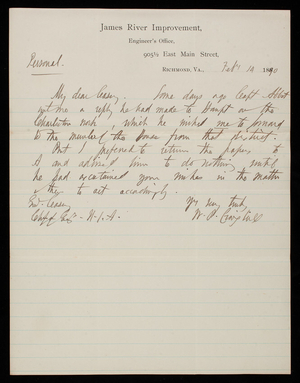 James River Improvement,
Engineer's Office,
905½ East Main Street,
Personal.
Richmond, Va., Feb'y 14 1890
My dear Casey, Some days ago Capt Abbot
sent me a reply he had made to on the
Charleston work, which he wished me to forward
to the member of the House from that district.
But I preferred to return the papers to
and advised him to do nothing until
he had ascertained your wishes in the matter
& then to act accordingly.
Gen. Casey Yrs very truly,
Chf of Eng's U.S.A. W. P. Craighill